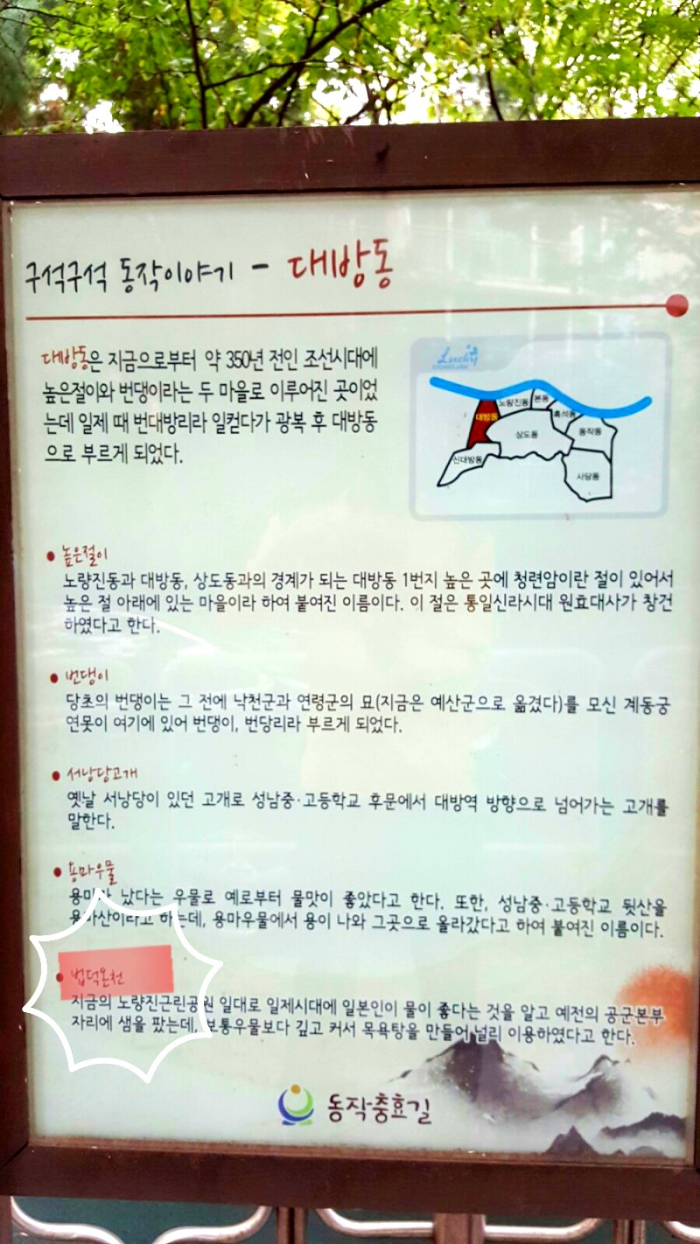 구석구석 동작이야기 - 대방동
대방동은 지금으로부터 약 350년 전인 조선시대에
높은절이와 번댕이라는 두 마을로 이루어진 곳이었
는데 일제 때 번대방리라 일컫다가 광복 후 대방동
으로 부르게 되었다.
Lucky
노량진동
본동
대방동
흑석동
상도동
동작동
신대방동
사당동
높은절이
노량진동과 대방동, 상도동과의 경계가 되는 대방동 1번지 높은 곳에 청련암이란 절이 있어서
높은 절 아래에 있는 마을이라 하여 붙여진 이름이다. 이 절은 통일신라시대 원효대사가 창건
하였다고 한다.
번댕이
당초의 번댕이는 그 전에 낙천군과 연령군의 묘(지금은 예산군으로 옮겼다)를 모신 계동궁
연못이 여기에 있어 번댕이, 번당리라 부르게 되었다.
서낭당고개
옛날 서낭당이 있던 고개로 성남중·고등학교 후문에서 대방역 방향으로 넘어가는 고개를
말한다.
용마우물
용마가 났다는 우물로 예로부터 물맛이 좋았다고 한다. 또한, 성남중·고등학교 뒷산을
용마산이라고 하는데, 용마우물에서 용이 나와 그곳으로 올라갔다고 하여 붙여진 이름이다.
법덕온천
지금의 노량진근린공원 일대로 일제시대에 일본인이 물이 좋다는 것을 알고 예전의 공군본부
자리에 샘을 팠는데, 보통우물보다 깊고 커서 목욕탕을 만들어 널리 이용하였다고 한다.
동작충효길